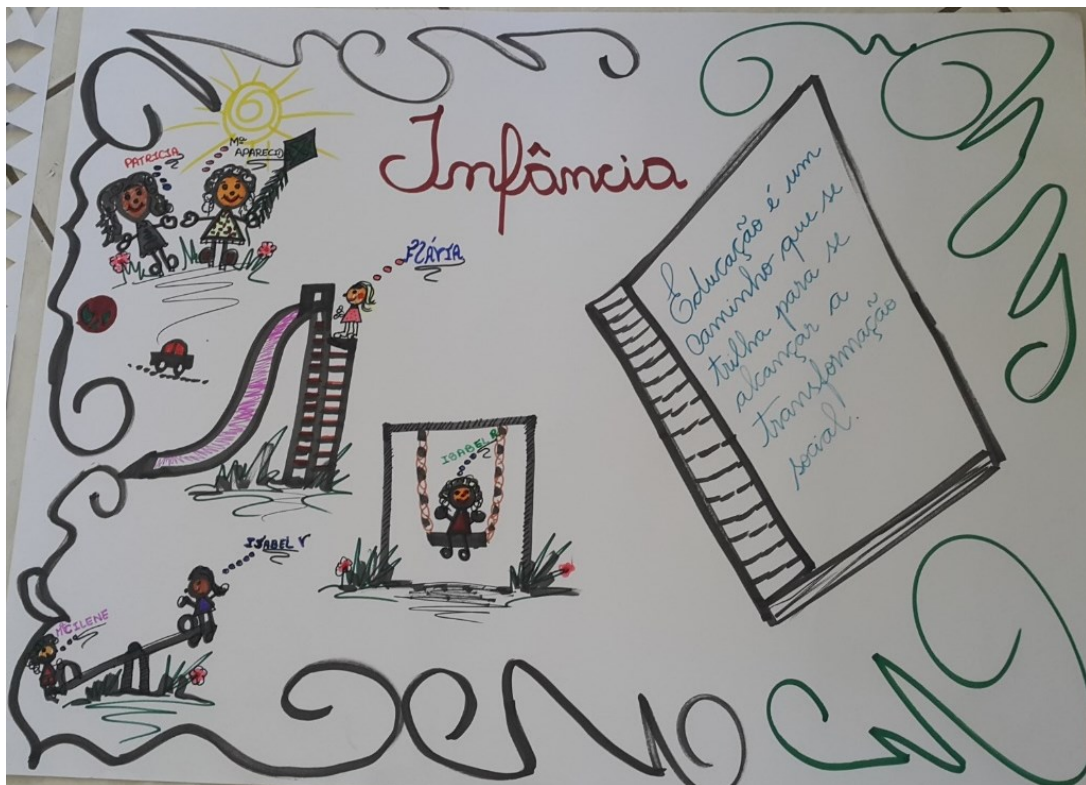 Infância
PATRICIA
Mª
APARECID
FLÁVIA
ISABEL R
ISABEL V
MªCILENE
Educação é um
caminho que se
trilha para se
alcançar a
transformação
social.